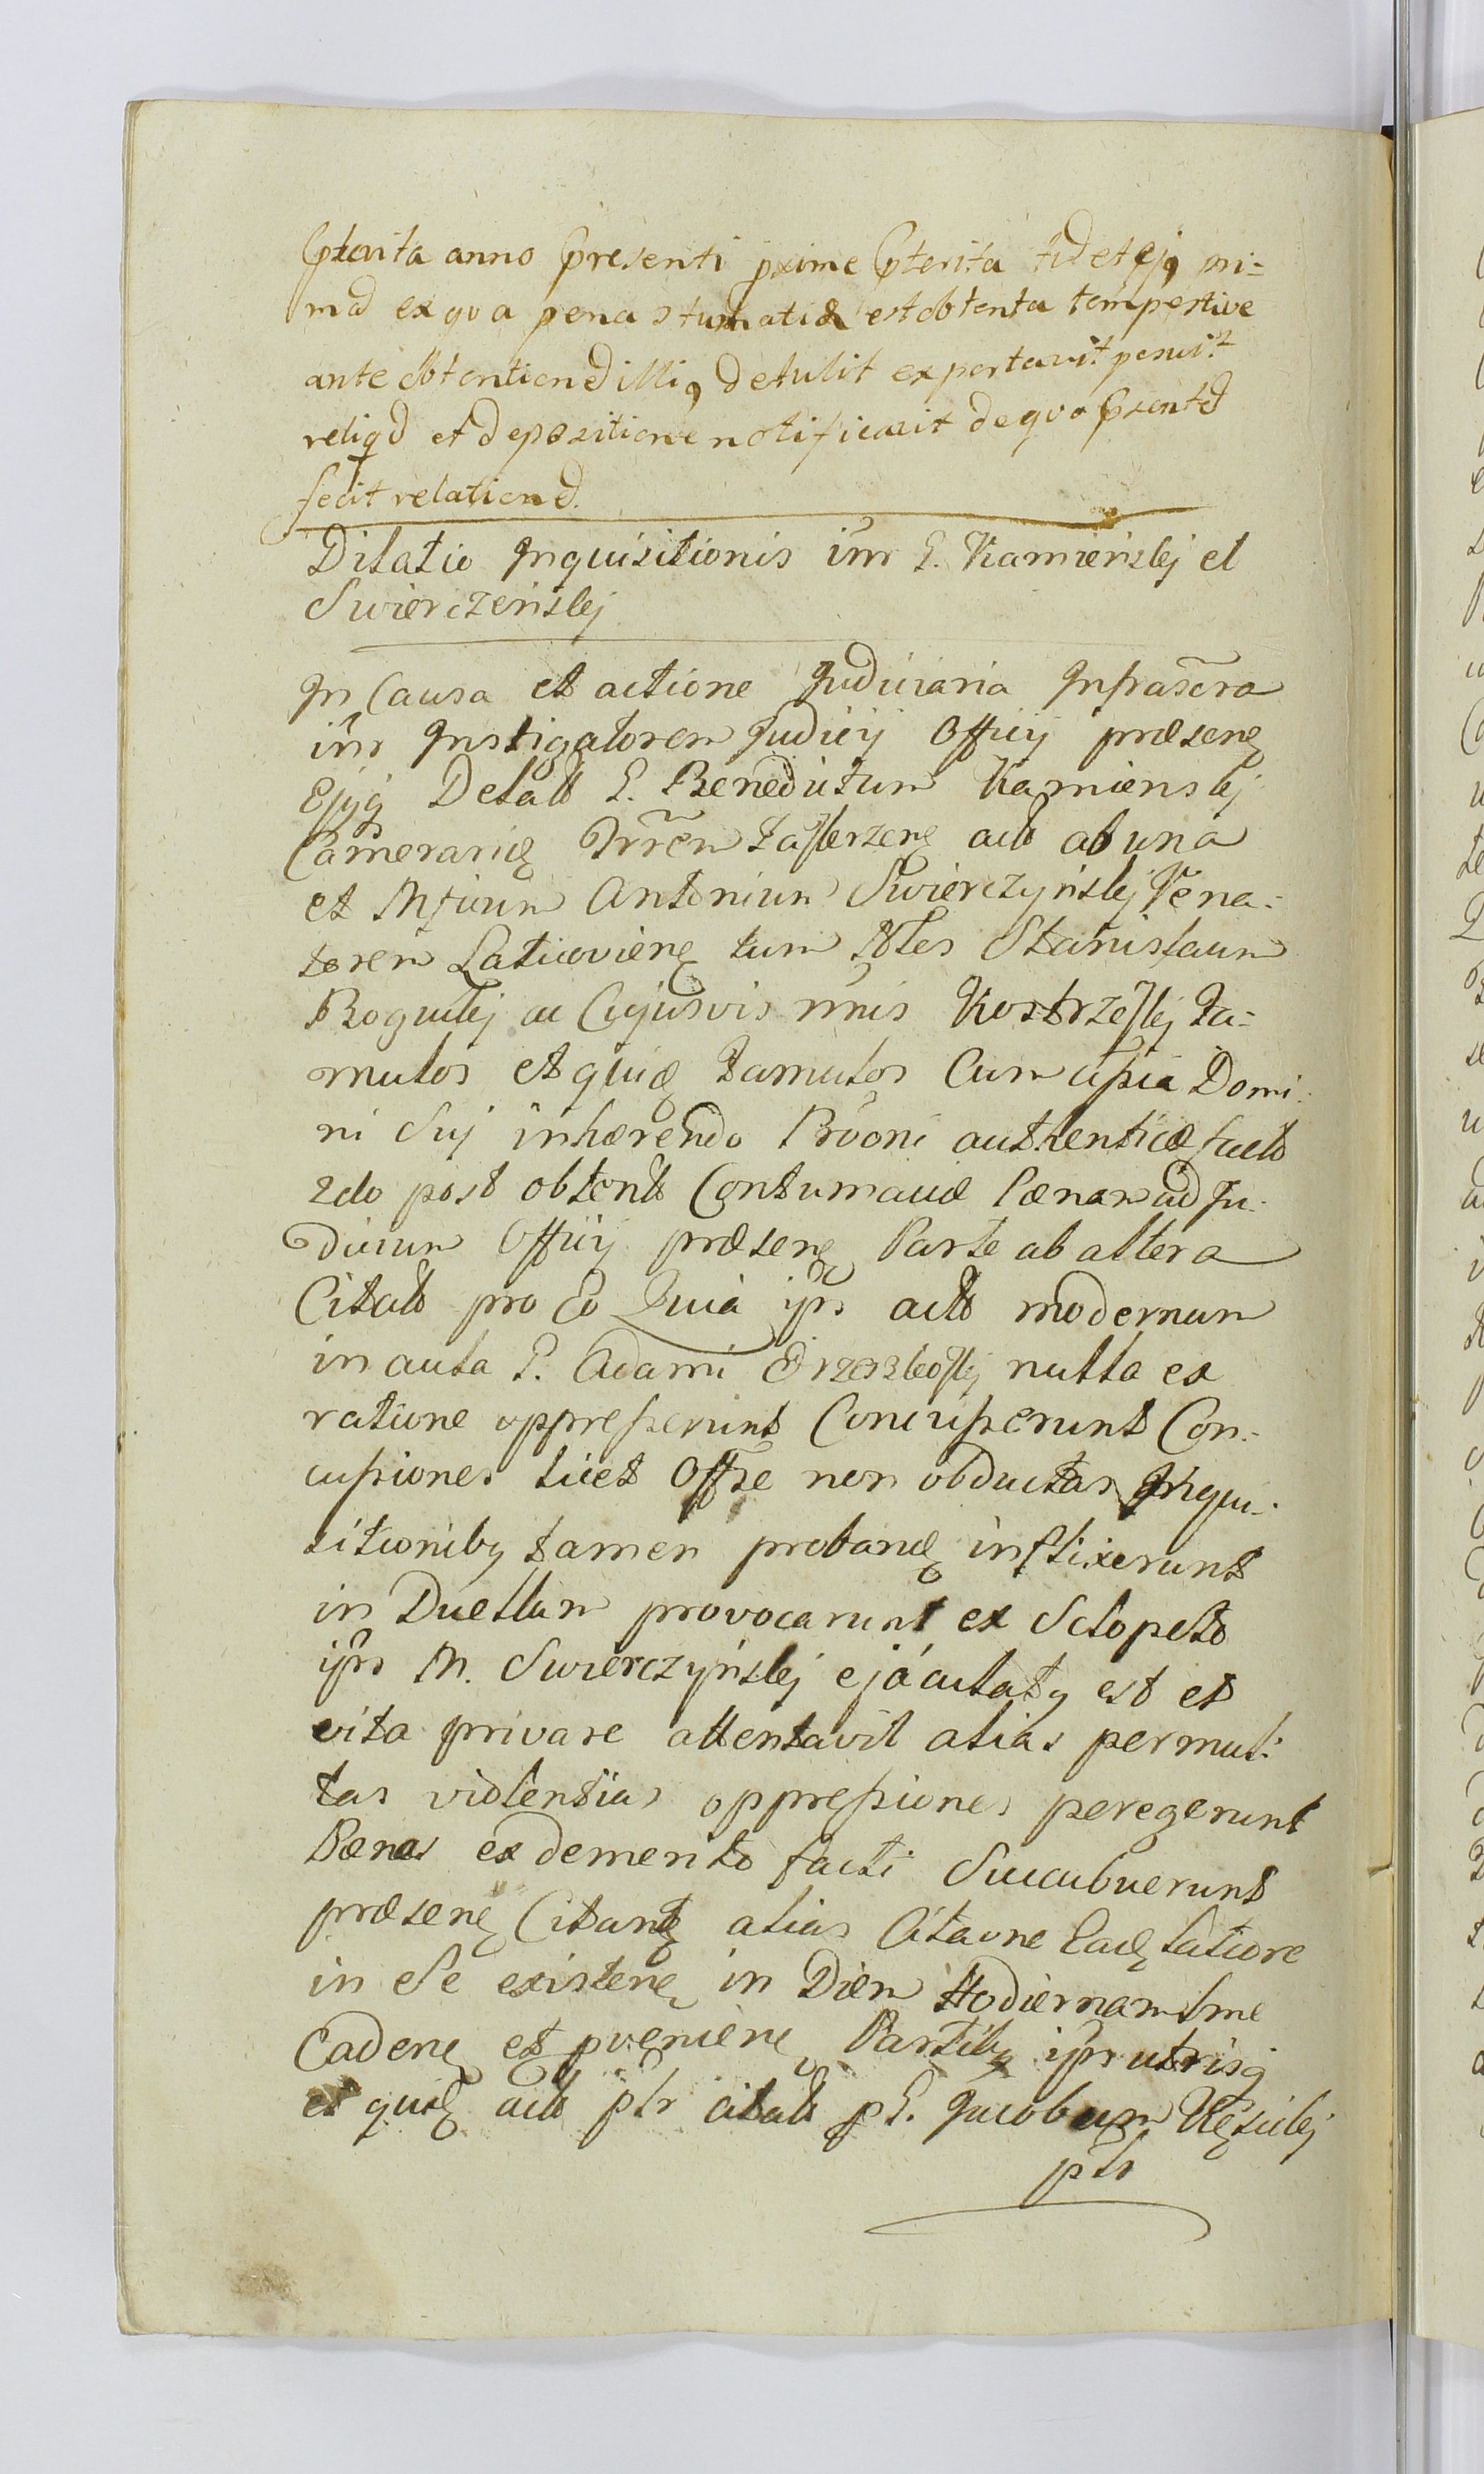 pterita anno presenti pxime pterita fid et ejq pri=
mad ex qva pena stumatiæ est obtenta tempestive
ante obtentioned illiq detulit exportavit posuit
reliqd et depositione notificavit de qvo psented
fecit relationed.
Dilatio Inquisitionis inr G. Kamieńskj et
Swierczeńskj
In Causa et actione Judiciaria Infrascra
inr Instigatorem Judicij Officij præsenę
Ejqą Delatt G. Benedictum Kamienskj
Camerarię Trrem ad ab una
et Mficum Antonium Swierczyńskj Vena=
torem Laticovienę tum Nbles Stanisłaum
Roguskj ac Cujusvis nnis Kostrzeskj Fa=
mulos et quię famulos Cum assia Domi=
ni Suj inhærendo Prooni authenticæ fact
2do post obtent Contumaciæ Pænam ad Ju=
dicium Officij præsenę Parte ab altera
Citatt pro Eo Quia ipsi actt modernum
in aula G. Adami nulla ex
ratione oppresserunt Concusserunt Con=
cussiones licet Offse non obductas Inqui=
sitionibq tamen probandę inflixerunt
in Duellum provocarunt ex Sclopeto
ipse M. Swierczyńskj ejáculatq est et
vita privare attentavit alias permul=
tas violentias oppressiones peregerunt
Pænas ex demerito facti Succubuerunt
præsenę Citantę alias Citaone Eadę latiore
in Se existenę in Diem Hodiernam lme
Cadenę et pvenienę Partibq ipsis utrisq
et quię actt plr citatt p G. Jacobum
plr